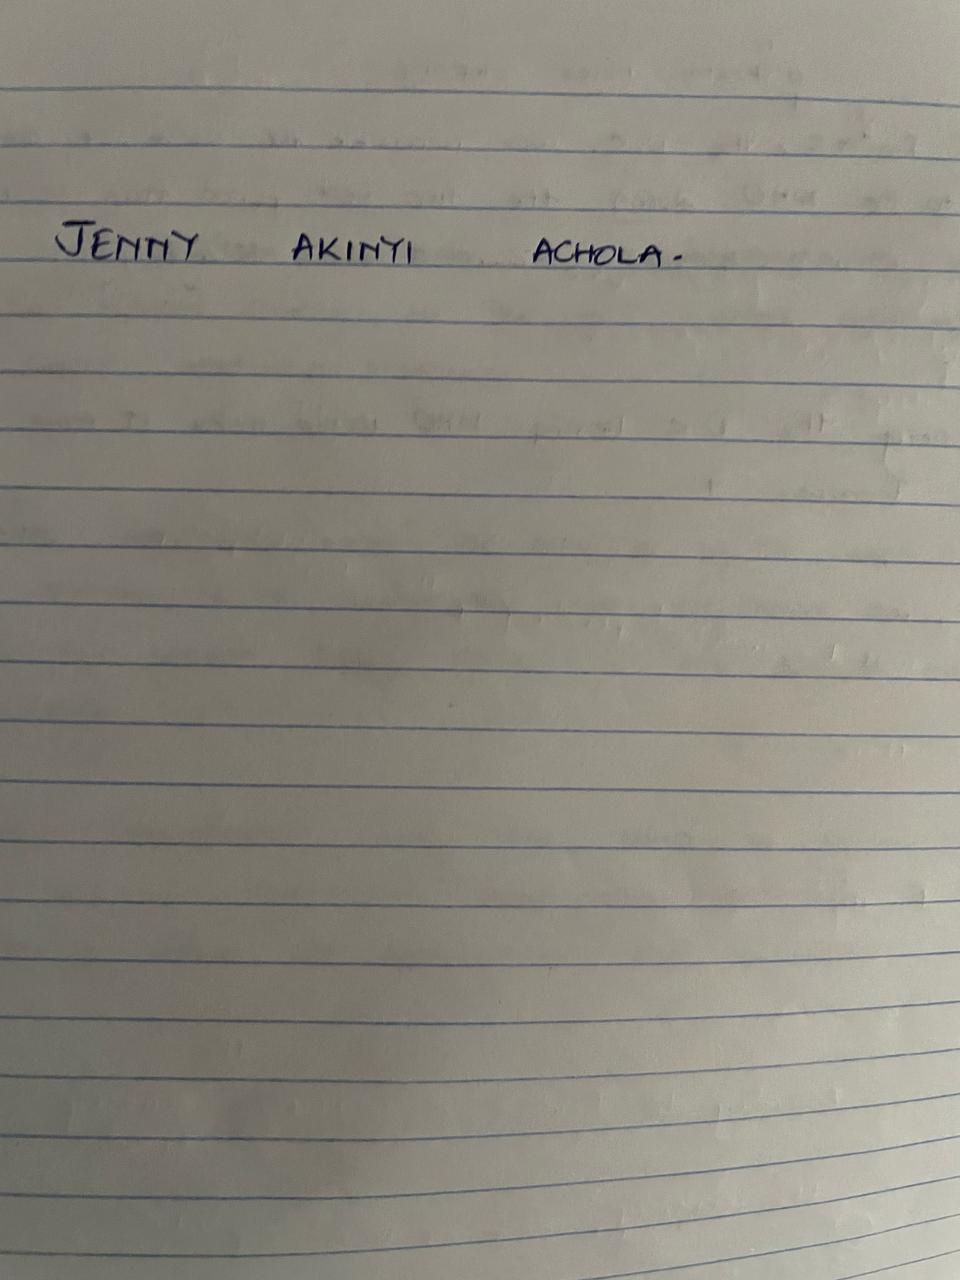 JENNY AKINYI ACHOLA.